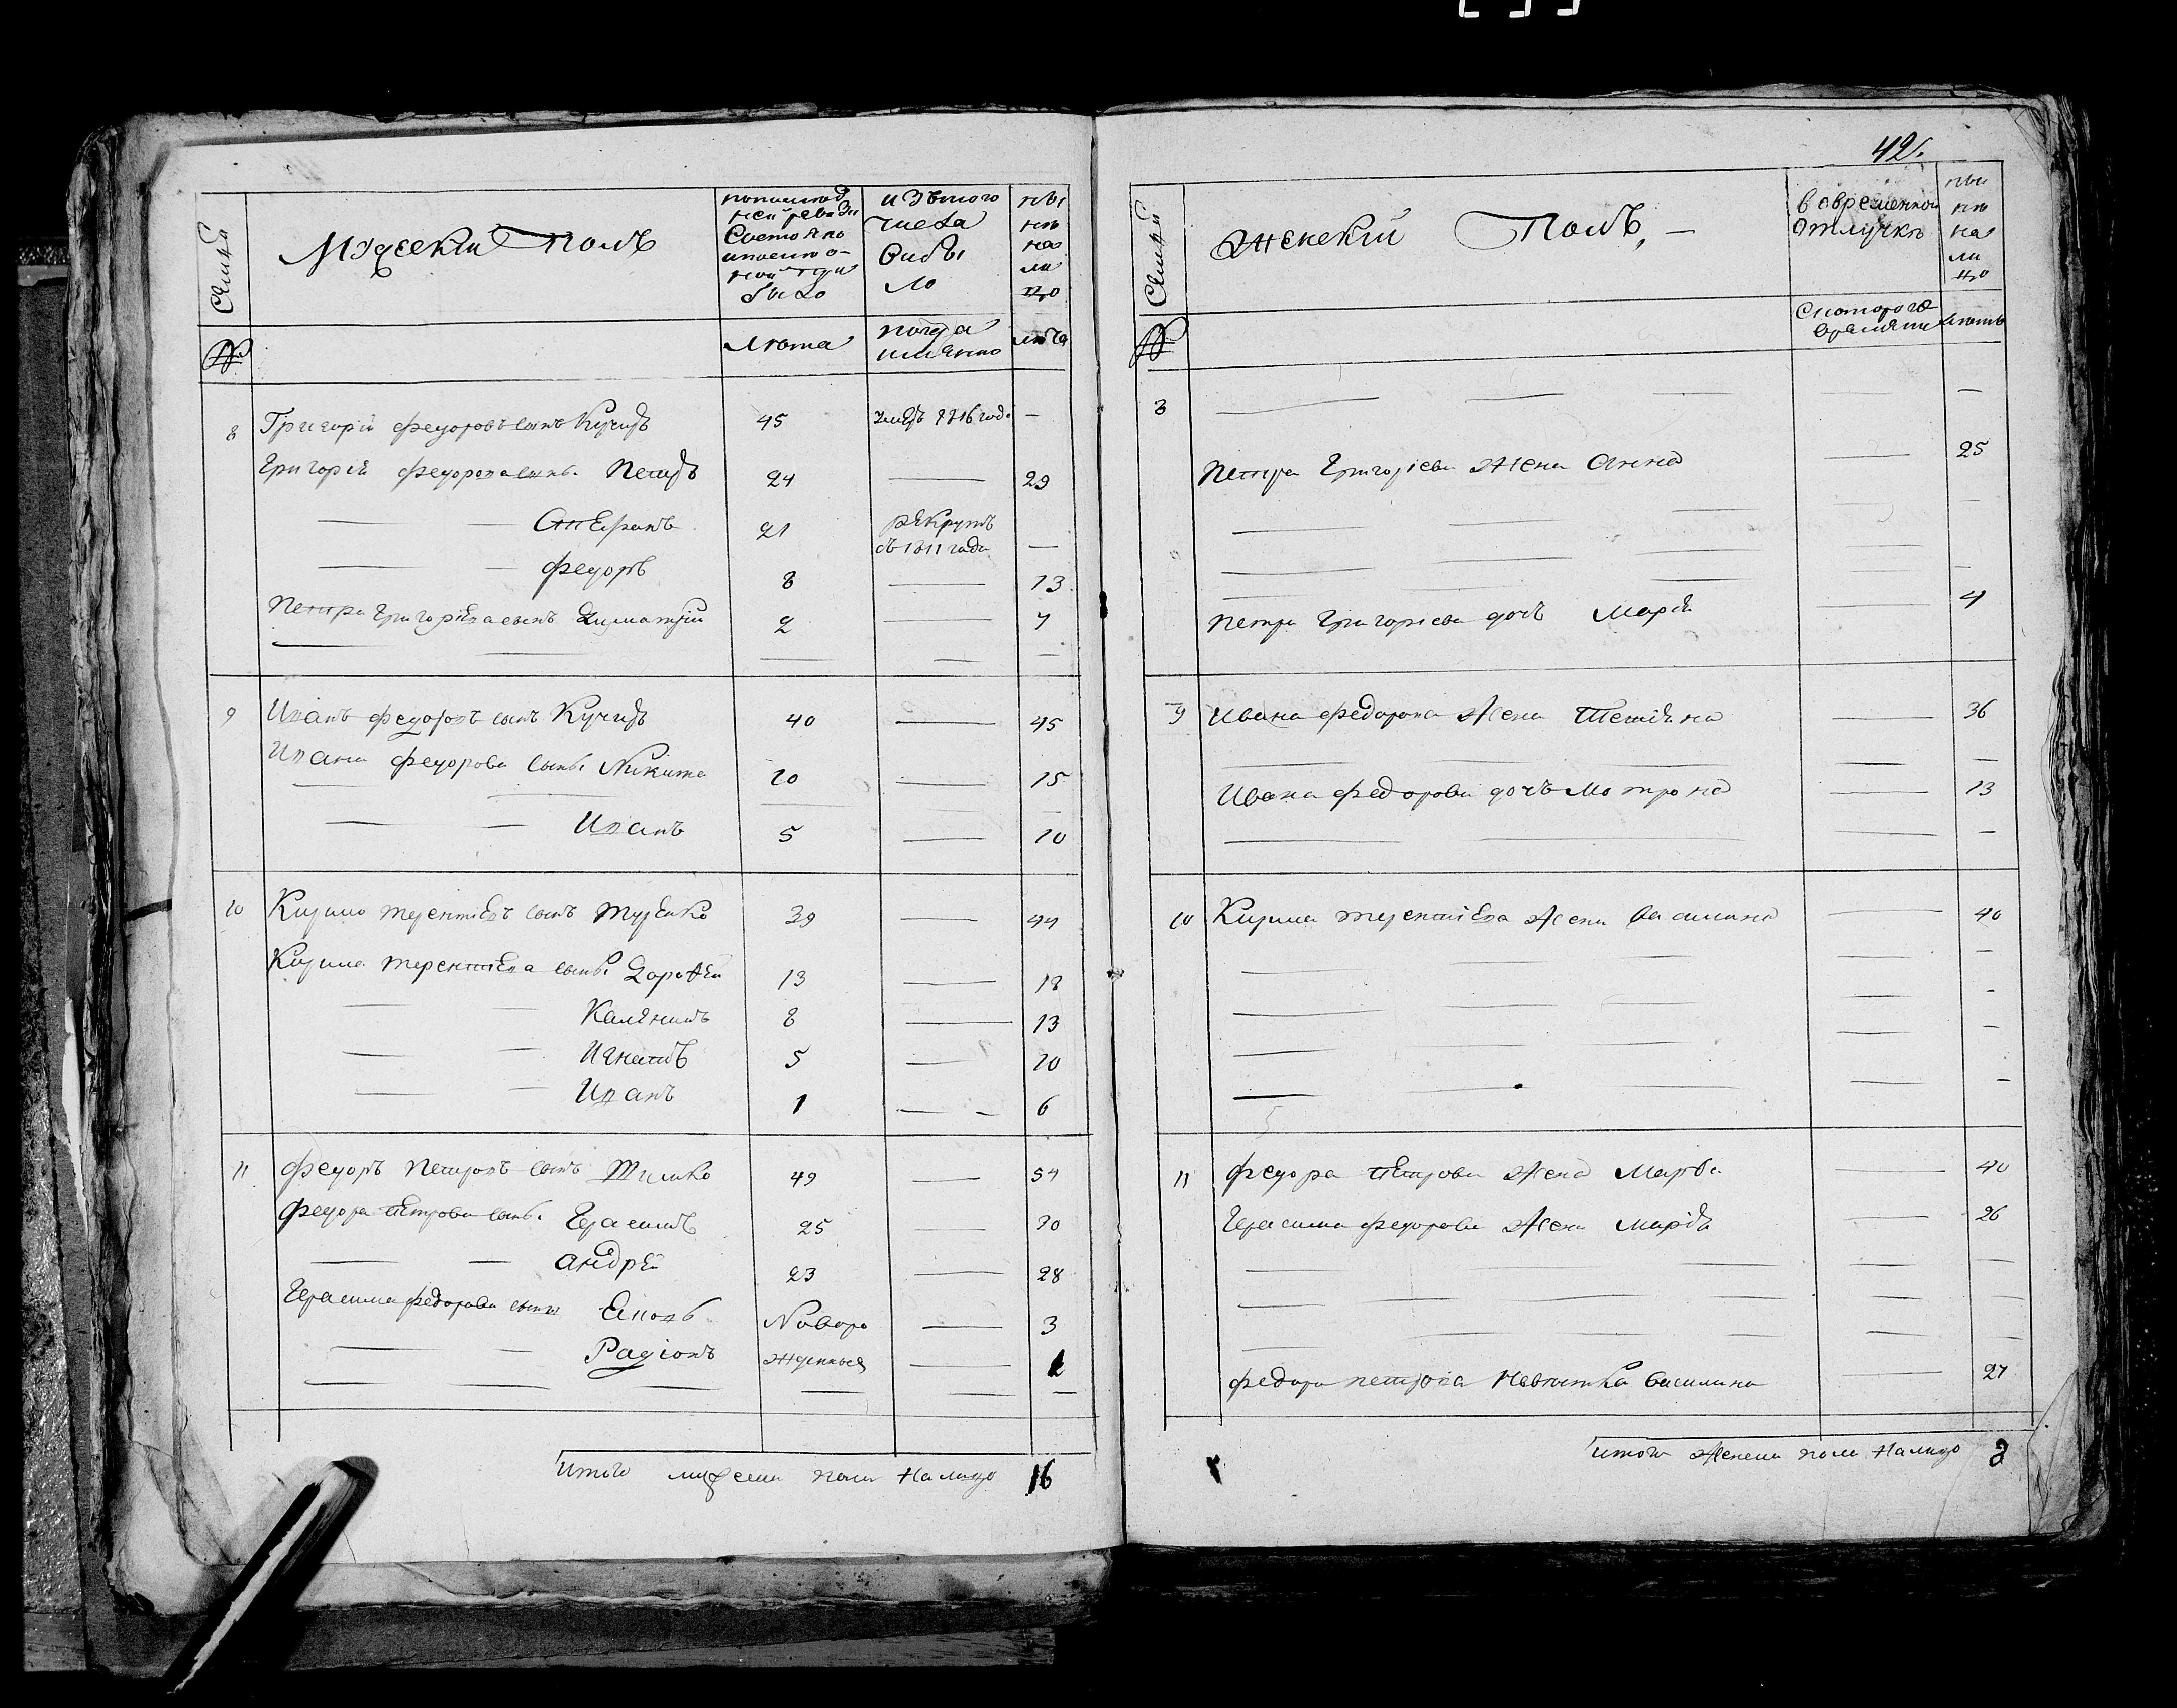 42.
Семьи
Мужескiй полъ
по последней ревизiи состояло и после оной прибыло
изъ того числа выбыло
ныне на лицо
№
Лета
когда имянно
лета
8 Григорiй Федоровъ сынъ Кучеръ 45 умеръ 1816 год. —
Григорiя Федорова сынъ. Петръ 24 — 29
— Стефанъ 21 рекрутъ въ 1811 году —
— — Федоръ 8 — 13
Петра Григорiева сынъ Димитрiй 2 — 7
9 Иванъ Федоровъ сынъ Кучеръ 40 — 45
Ивана Федорова сыны Никита 10 — 15
— — Иванъ 5 — 10
10 Кирило Терентiевъ сынъ Туренко 39 — 44
Кирила Терентiева сыны Дорофей 13 — 18
— — Каленикъ 8 — 13
— — Игнатъ 5 — 10
— — Иванъ 1 — 6
11 Федоръ Петровъ сынъ Тимко 49 — 54
Федора Петрова сынъ. Герасимъ 25 — 30
— — Андрей 23 — 28
Герасима Федорова сыны Яковъ Новоро — 3
— — Радiонъ жденныя — 1
Итого мужеска пола на лицо 16
Семьи
Женскiй Полъ, —
во временной отлучке
ныне на лицо
№
с которого времяни
лета
8 — — — — —
Петра Григорiева жена Анна — 25
Петра Григорiева дочь Марiя — 4
9 Ивана Федорова жена Татiяна — 36
Ивана Федорова дочь Мотрона — 13
10 Кирила Терентiева жена Василина — 40
11 Федора Петрова жена Марфа — 40
Герасима Федорова жена Марiя — 26
Федора Петрова невестка Василина — 27
Итого женска пола на лицо 8